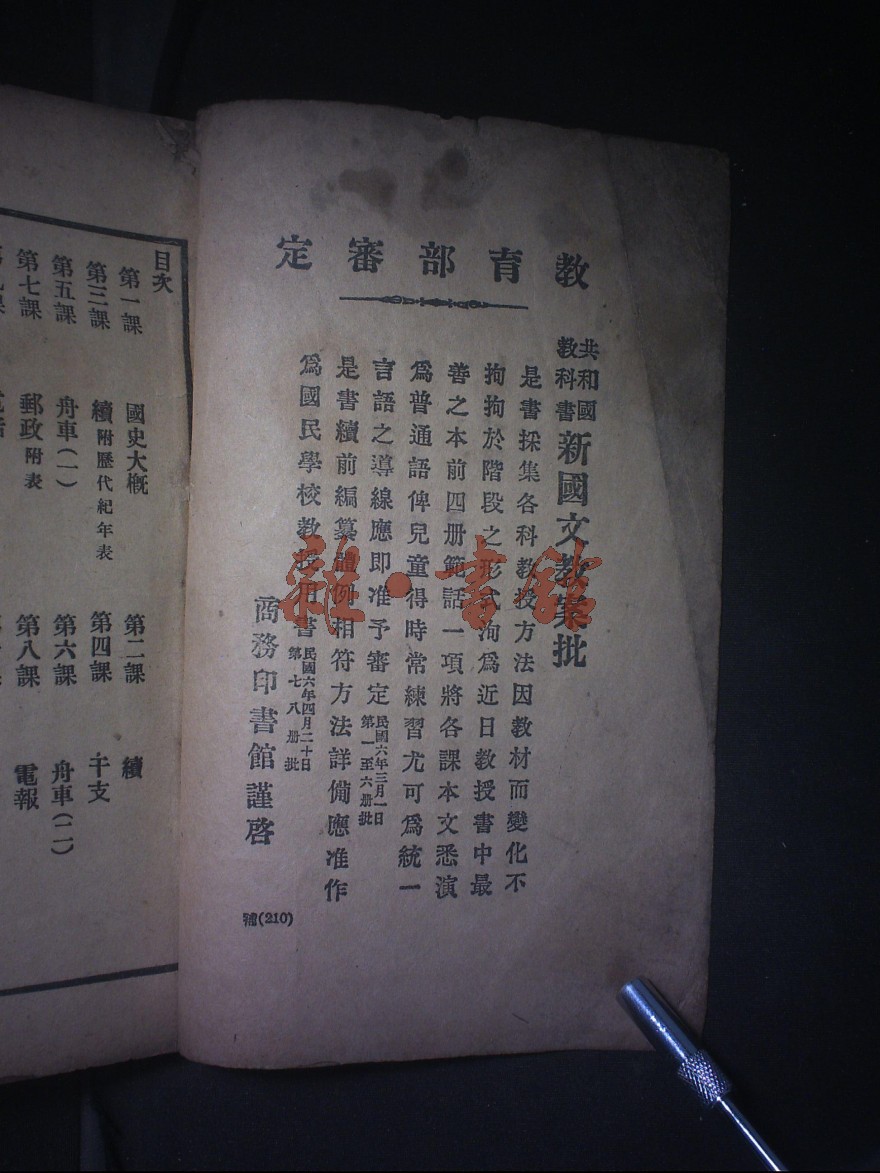 教育部審定
共和國
教科書
新國文教案批
是書採集各科教授方法因教材而變化不
拘拘於階段之形式洵爲近日教授書中最
善之本前四册範話一項將各課本文悉演
爲普通語俾兒童得時常練習尤可爲統一
言語之導線應即准予審定
民國六年三月一日
第一至六册批
是書續前編纂體例相符方法詳備應准作
爲國民學校教授用書
民國六年四月二十日
第七八册批
商務印書館謹啓
號(210)
雜·書館
目次
第一課 國史大槪 第二課 續
第三課 續附歷代紀年表 第四課 干支
第五課 舟車(一) 第六課 舟車(二)
第七課 郵政附表 第八課 電報